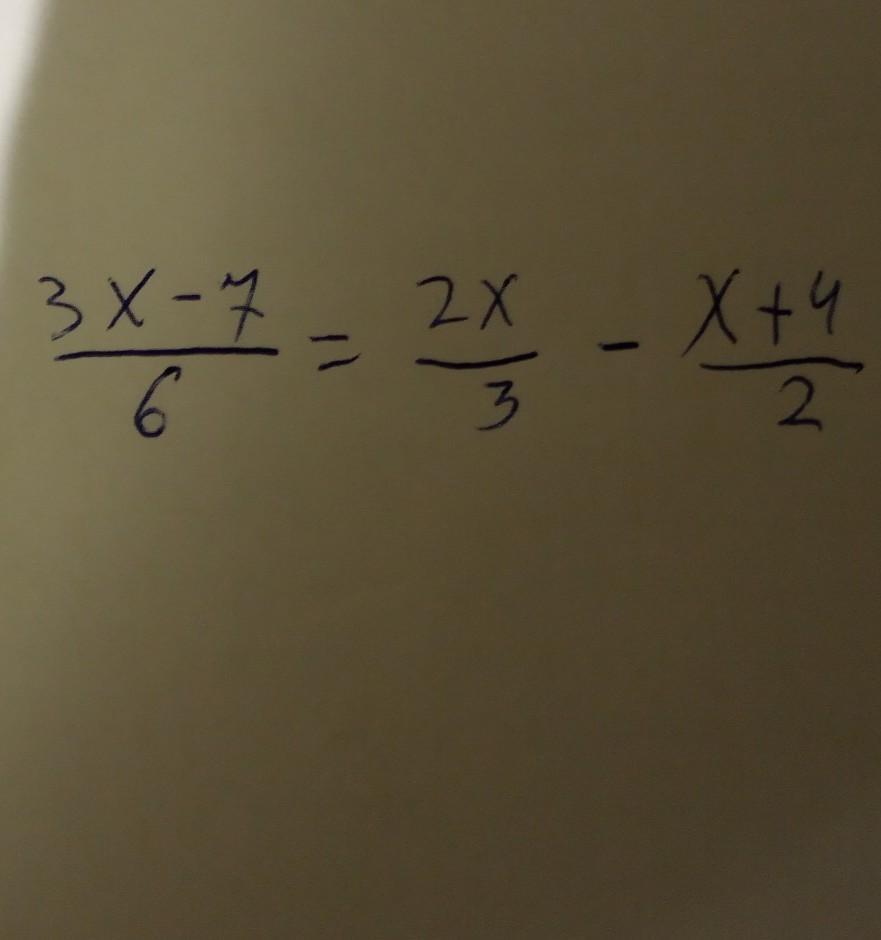 3x-7/6 = 2x/3 - x+4/2